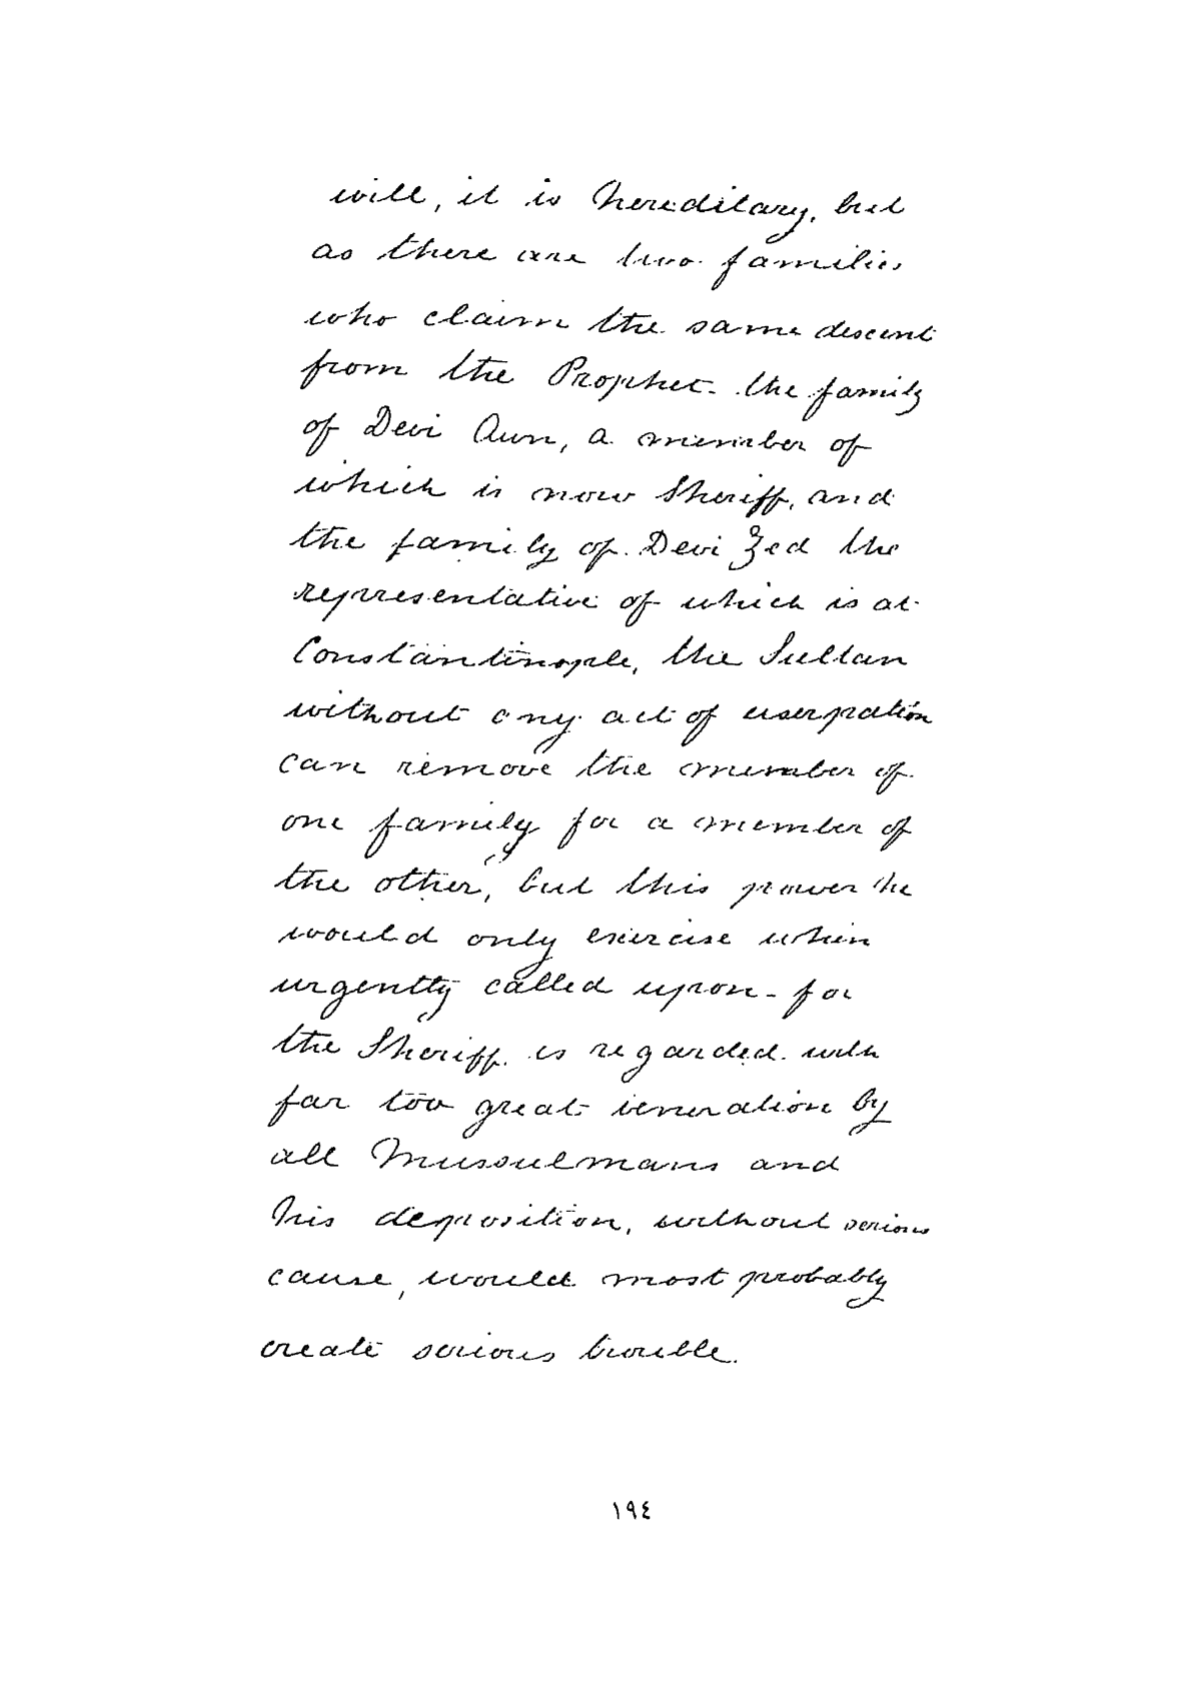 will, it is hereditary, but
as there are two families
who claim the same descent
from the Prophet - the family
of Devi Aun, a member of
which is now Sheriff, and
the family of Devi Zed the
representative of which is at
Constantinople, the Sultan
without any act of userpation
can remove the member of
one family for a member of
the other, but this power he
would only exercise when
urgently called upon - for
the Sheriff is regarded with
far too great veneration by
all Mussulmans and
his deposition, without serious
cause, would most probably
create serious trouble.
١٩٤